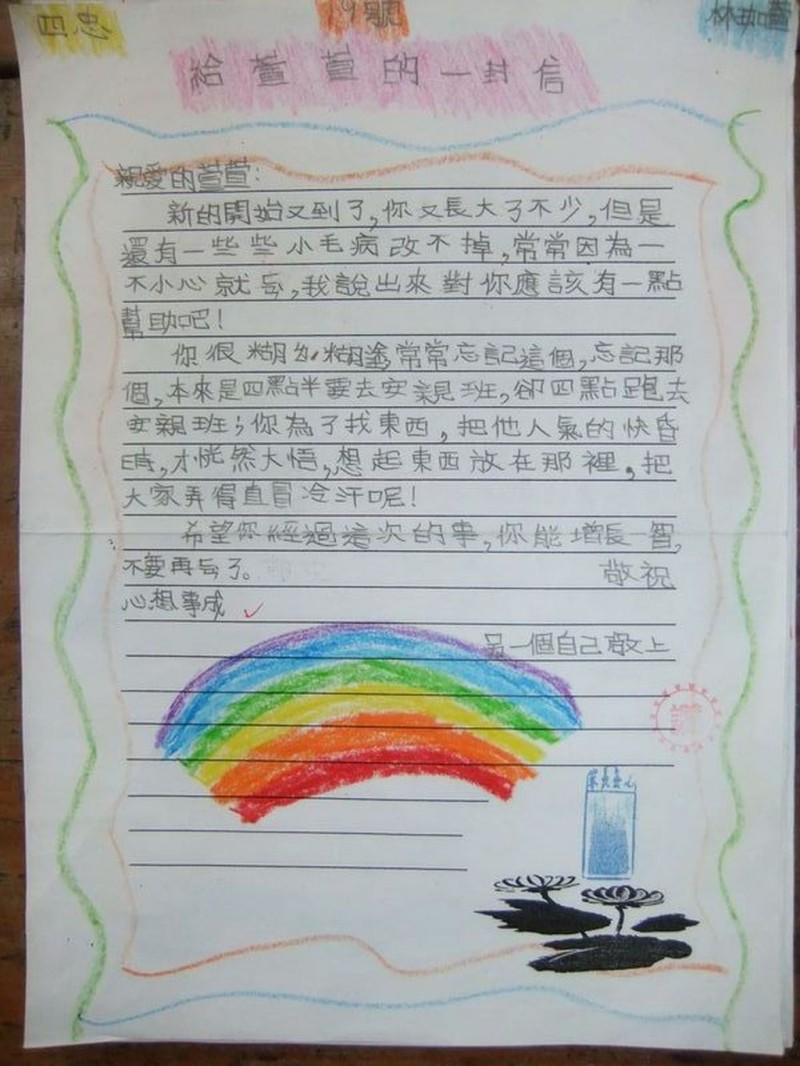 四忠
19號
給萱萱的一封信
親愛的萱萱:
新的開始又到了,你又長大了不少,但是
還有一些些小毛病改不掉,常常因為一
不小心就忘,我說出來對你應該有一點
幫助吧!
你很糊糊塗,常常忘記這個,忘記那
個,本來是四點半要去安親班,卻四點跑去
安親班;你為了找東西,把他人氣的快昏
時,才恍然大悟,想起東西放在那裡,把
大家弄得直冒冷汗呢!
希望你經過這次的事,你能增長一智,
不要再忘了。 敬祝
心想事成
另一個自己敬上